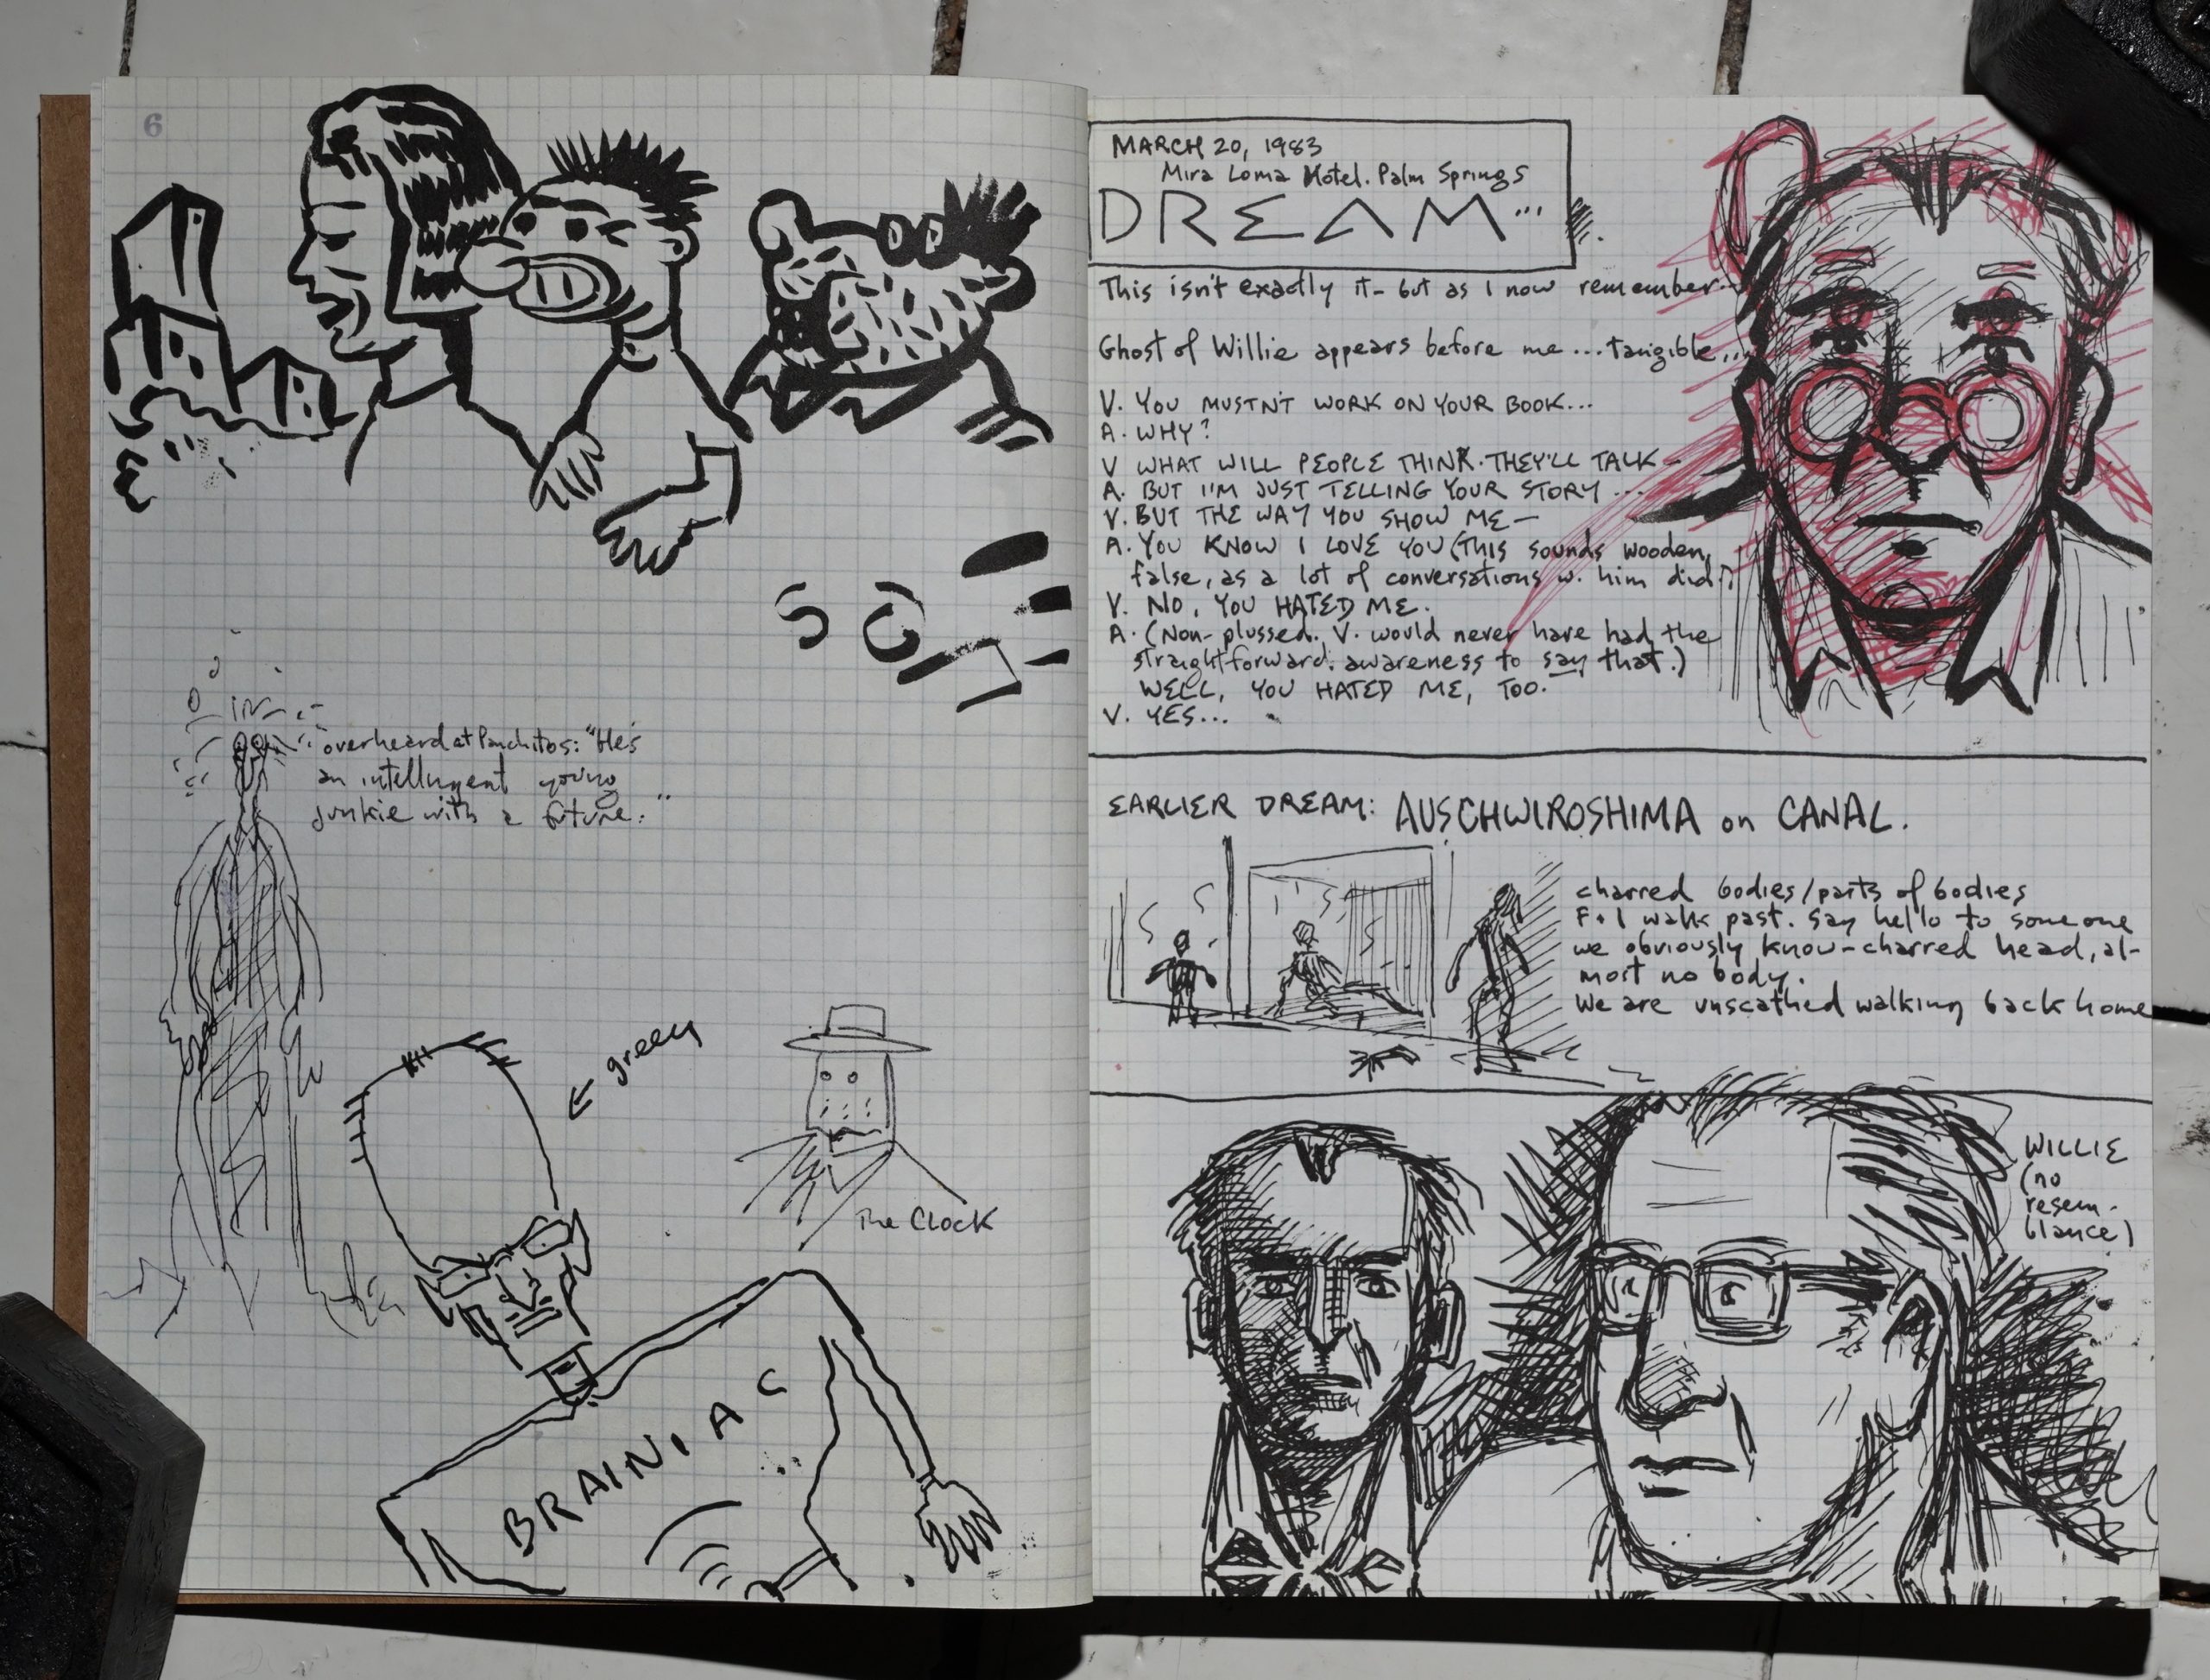 6
overheard at Panchitos: "He's
an intelligent young
junkie with a future."
← green
The Clock
BRAINIAC
MARCH 20, 1983
Mira Loma Hotel. Palm Springs
DREAM...
This isn't exactly it - but as I now remember...
Ghost of Willie appears before me ... tangible...
V. YOU MUSTN'T WORK ON YOUR BOOK...
A. WHY?
V WHAT WILL PEOPLE THINK. THEY'LL TALK -
A. BUT I'M JUST TELLING YOUR STORY ...
V. BUT THE WAY YOU SHOW ME -
A. YOU KNOW I LOVE YOU (This sounds wooden,
false, as a lot of conversations w. him did.)
V. NO, YOU HATED ME.
A. (Non-plussed. V. would never have had the
straightforward. awareness to say that.)
WELL, YOU HATED ME, TOO.
V. YES...
EARLIER DREAM: AUSCHWIROSHIMA on CANAL.
charred bodies/parts of bodies
F + I walk past. Say hello to someone
we obviously know - charred head, al-
most no body.
We are unscathed walking back home
WILLIE
(no
resem-
blance)